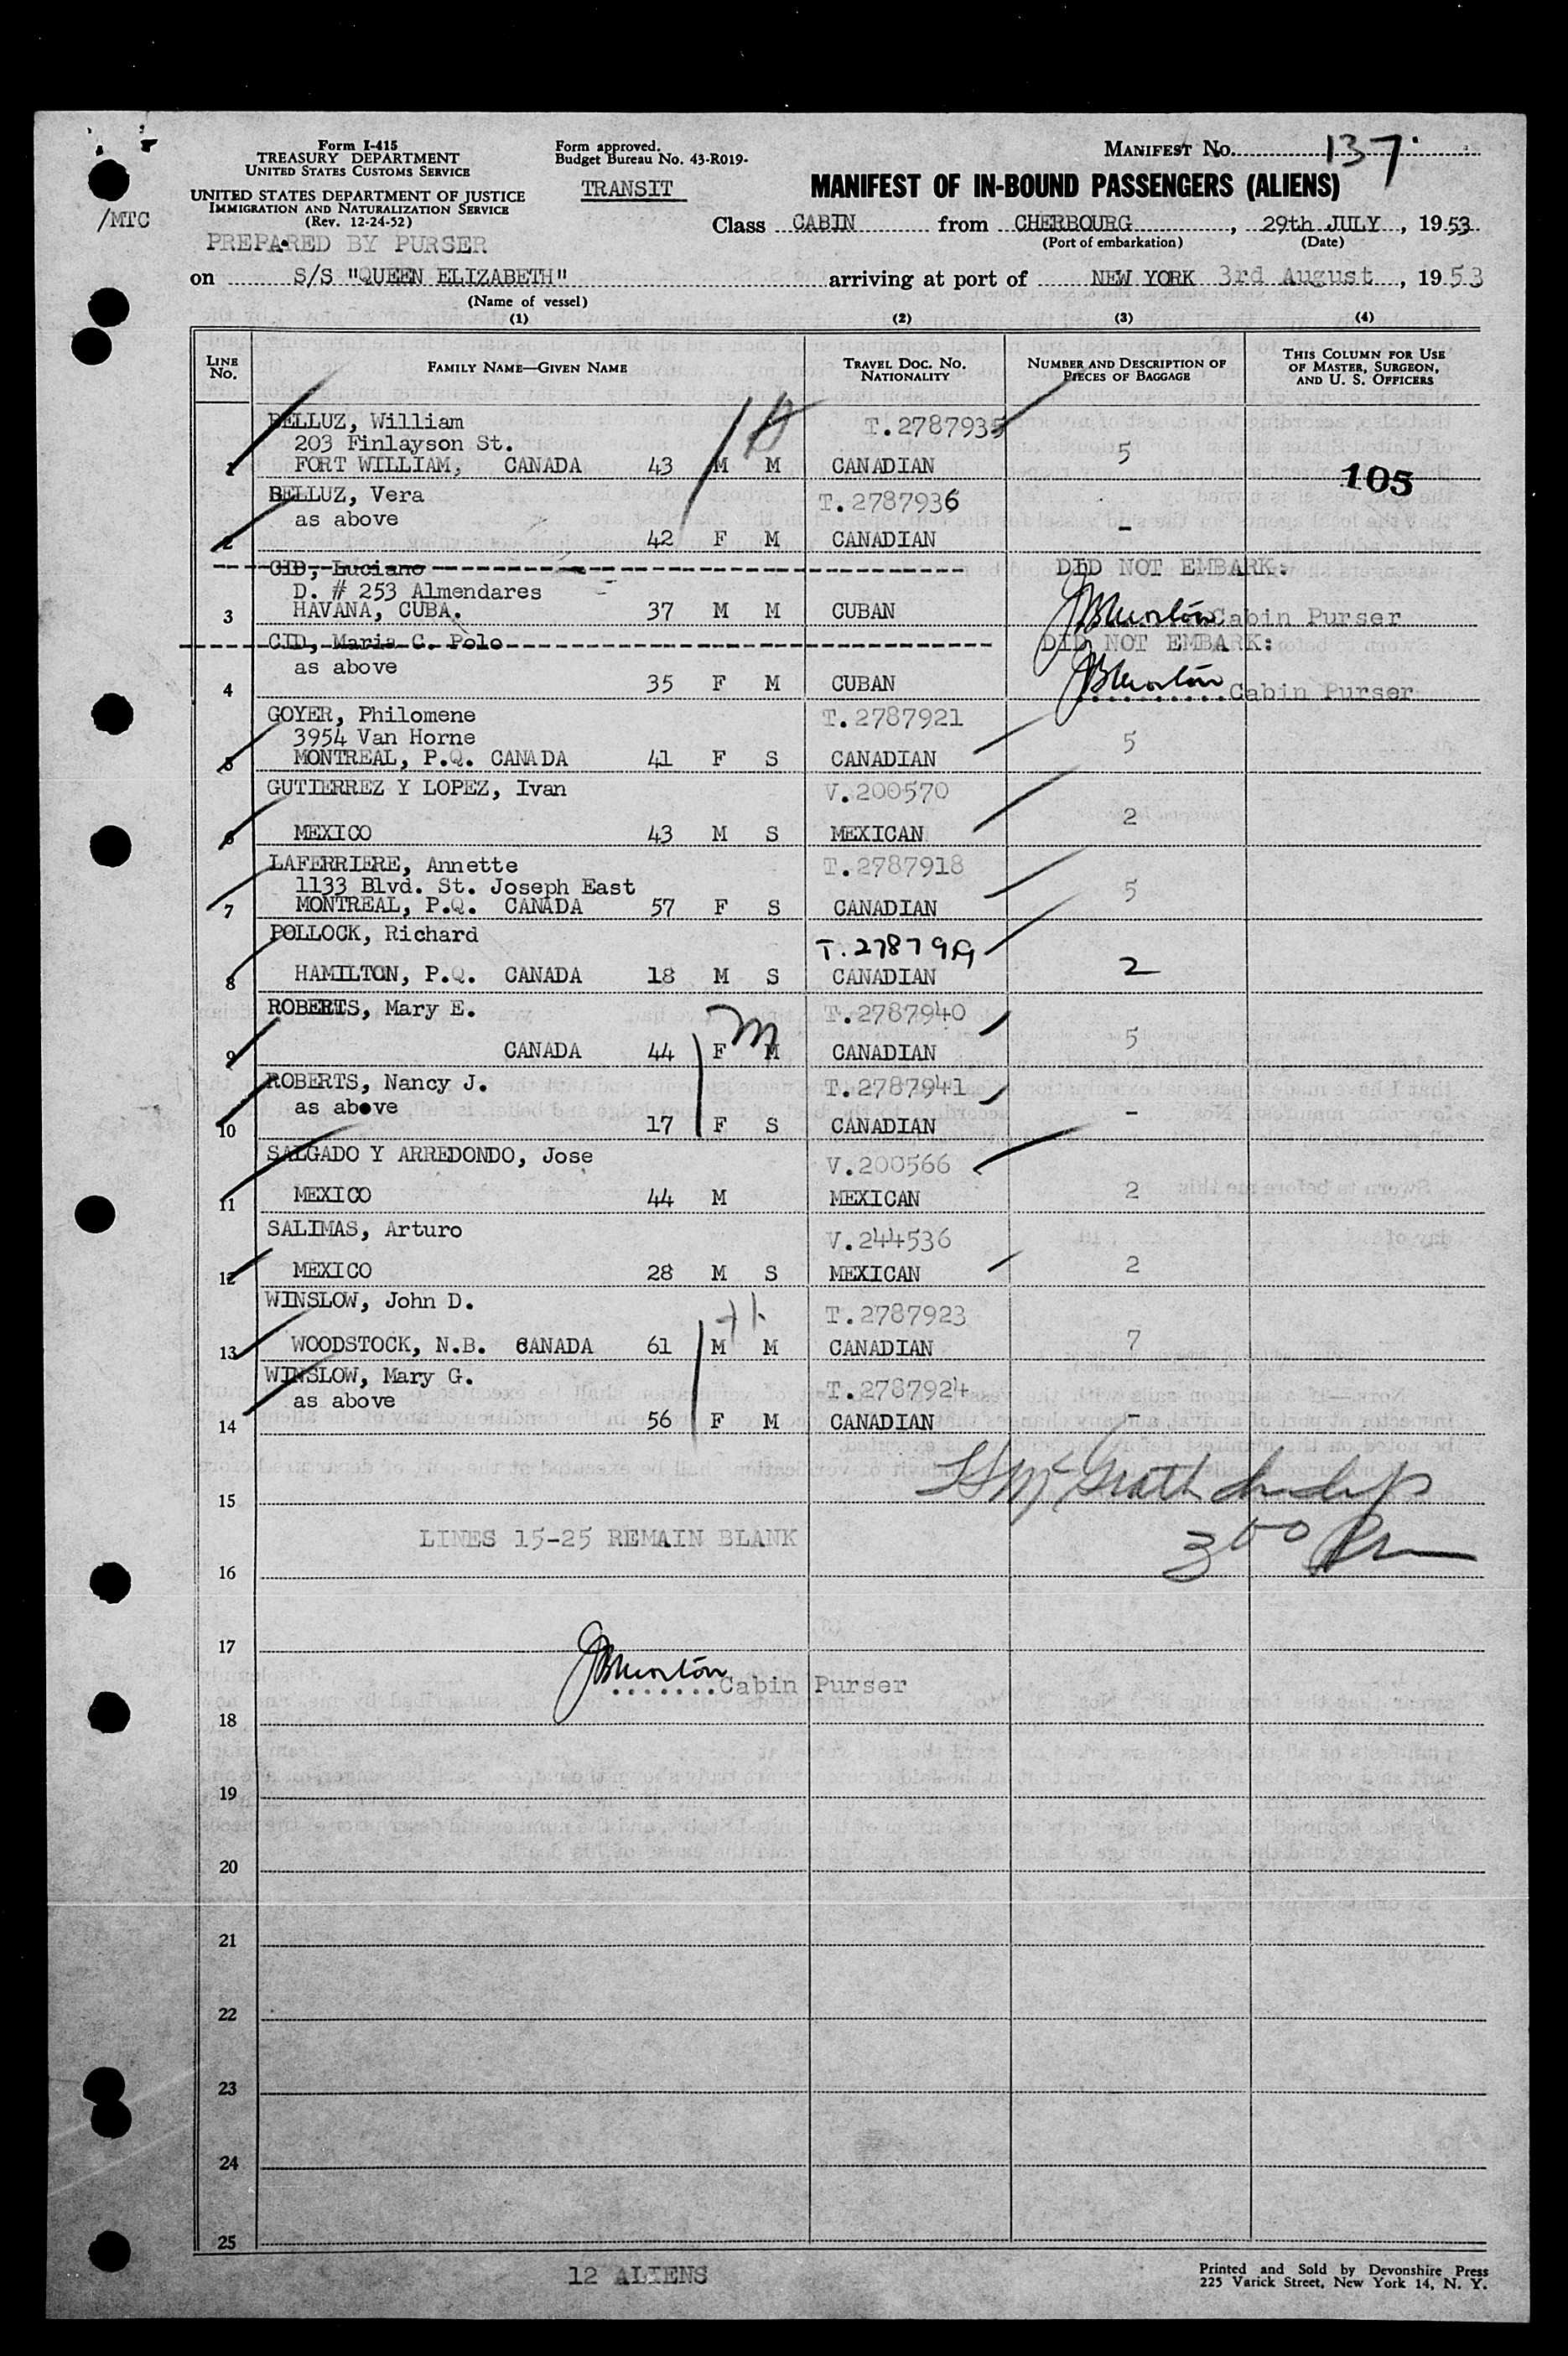 Form I-415
TREASURY DEPARTMENT
UNITED STATES CUSTOMS SERVICE
UNITED STATES DEPARTMENT OF JUSTICE
IMMIGRATION AND NATURALIZATION SERVICE
(Rev. 12-24-52)
/MTC
PREPARED BY PURSER
Form approved.
Budget Bureau No. 43-R019-
TRANSIT
MANIFEST No. 137
MANIFEST OF IN-BOUND PASSENGERS (ALIENS)
Class CABIN from CHERBOURG, 29th JULY, 1953
(Port of embarkation) (Date)
on S/S "QUEEN ELIZABETH" arriving at port of NEW YORK 3rd August, 1953
(Name of vessel)
(1) (2) (3) (4)
LINE No. FAMILY NAME—GIVEN NAME TRAVEL DOC. No. NATIONALITY NUMBER AND DESCRIPTION OF PIECES OF BAGGAGE THIS COLUMN FOR USE OF MASTER, SURGEON, AND U. S. OFFICERS
BELLUZ, William T.2787935
203 Finlayson St.
1 FORT WILLIAM, CANADA 43 M M CANADIAN 5
105
BELLUZ, Vera T.2787936
as above
2 42 F M CANADIAN -
CID, Luciano DID NOT EMBARK:
D. # 253 Almendares
3 HAVANA, CUBA. 37 M M CUBAN Cabin Purser
CID, Maria C. Polo DID NOT EMBARK:
as above
4 35 F M CUBAN Cabin Purser
GOYER, Philomene T.2787921
3954 Van Horne
5 MONTREAL, P.Q. CANADA 41 F S CANADIAN 5
GUTIERREZ Y LOPEZ, Ivan V.200570
6 MEXICO 43 M S MEXICAN 2
LAFERRIERE, Annette T.2787918
1133 Blvd. St. Joseph East
7 MONTREAL, P.Q. CANADA 57 F S CANADIAN 5
POLLOCK, Richard
8 HAMILTON, P.Q. CANADA 18 M S CANADIAN 2
ROBERTS, Mary E. T.2787940
9 CANADA 44 F M CANADIAN 5
ROBERTS, Nancy J. T.2787941
as above
10 17 F S CANADIAN -
SALGADO Y ARREDONDO, Jose V.200566
11 MEXICO 44 M MEXICAN 2
SALIMAS, Arturo V.244536
12 MEXICO 28 M S MEXICAN 2
WINSLOW, John D. T.2787923
13 WOODSTOCK, N.B. CANADA 61 M M CANADIAN 7
WINSLOW, Mary G. T.2787924
as above
14 56 F M CANADIAN -
15
LINES 15-25 REMAIN BLANK
300 Pm
16
17
Cabin Purser
18
19
20
21
22
23
24
25
12 ALIENS
Printed and Sold by Devonshire Press
225 Varick Street, New York 14, N. Y.